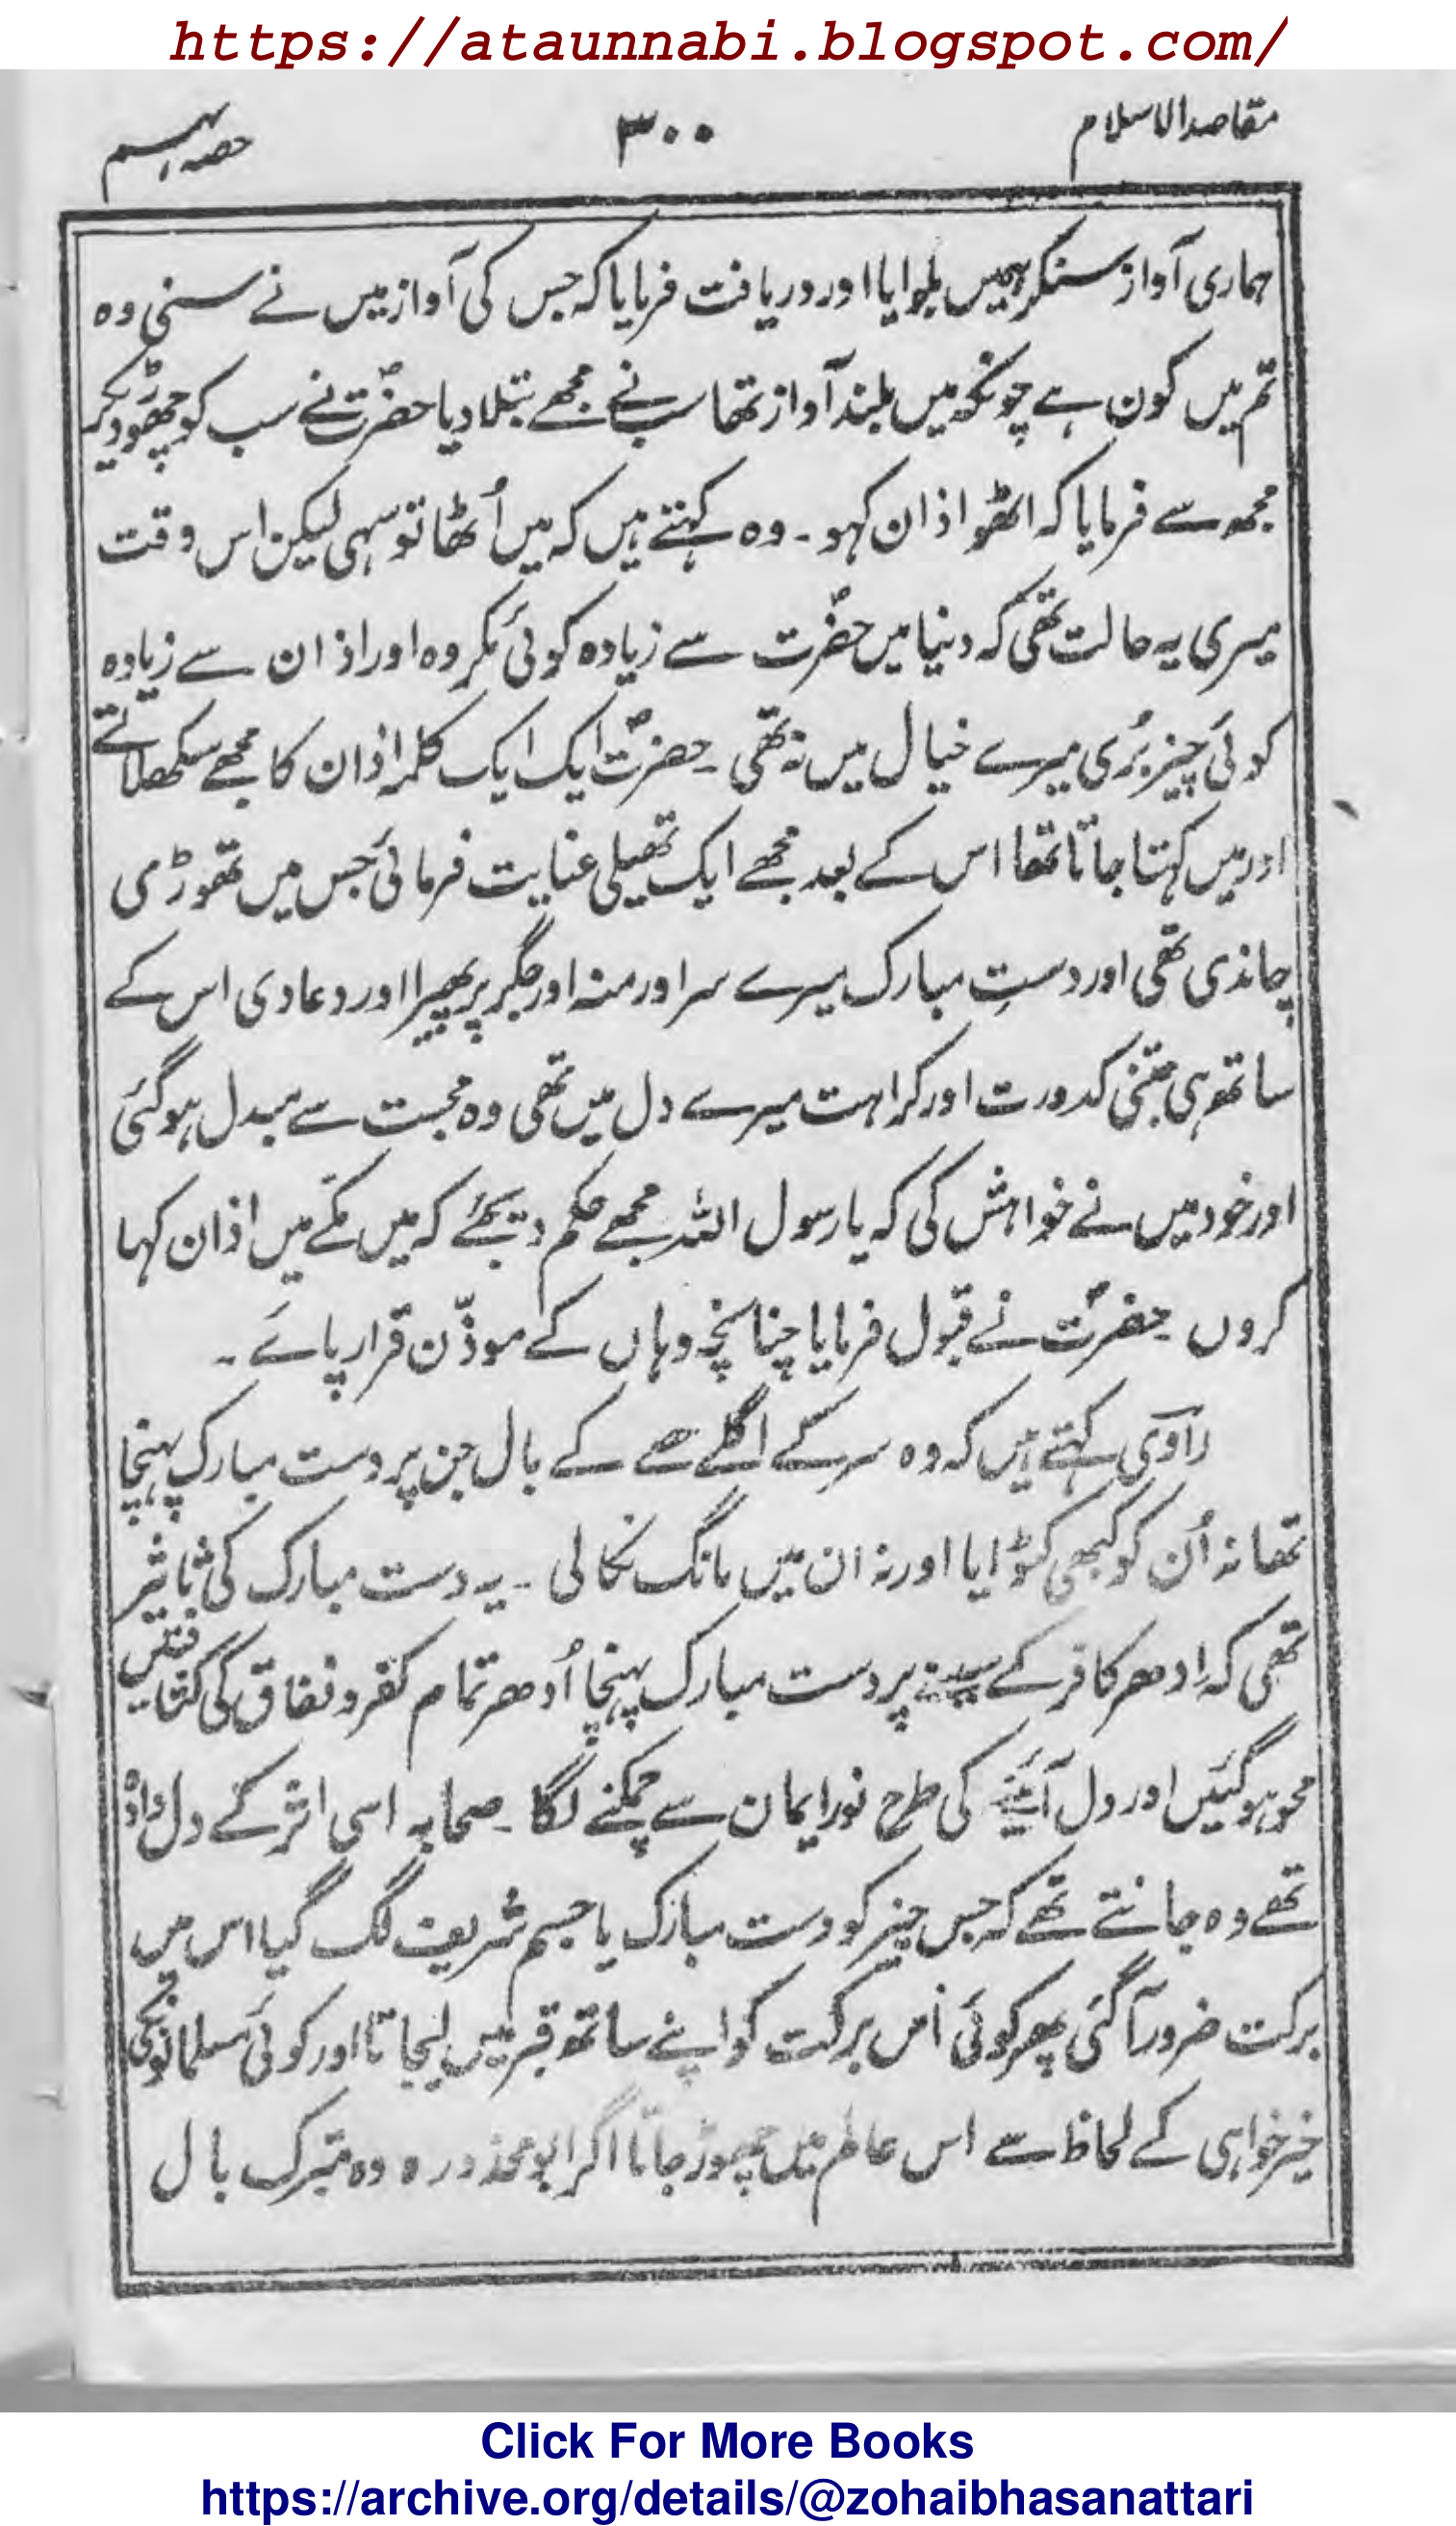 https://ataunnabi.blogspot.com/
مقاصد الاسلام ۳۰۰ حصہ نہم
ہماری آواز سنکر ہمیں بلوایا اور دریافت فرمایا کہ جس کی آواز میں نے سنی وہ
تم میں کون ہے چونکہ میں بلند آواز تھا سب نے مجھے بتلا دیا حضرتؐ نے سب کو چھوڑ دیکر
مجھ سے فرمایا کہ اٹھو اذان کہو ۔ وہ کہتے ہیں کہ میں اُٹھا تو سہی لیکن اس وقت
میری یہ حالت تھی کہ دنیا میں حضرتؐ سے زیادہ کوئی مکروہ اور اذان سے زیادہ
کوئی چیز بُری میرے خیال میں نہ تھی ۔ حضرتؐ ایک ایک کلمہ اذان کا مجھے سکھلاتے
اور میں کہتا جاتا تھا اس کے بعد مجھے ایک تھیلی عنایت فرمائی جس میں تھوڑی
چاندی تھی اور دستِ مبارک میرے سر اور منہ اور جگر پر پھیرا اور دعا دی اس کے
ساتھ ہی جتنی کدورت اور کراہت میرے دل میں تھی وہ محبت سے مبدل ہو گئی
اور خود میں نے خواہش کی کہ یا رسول اللہ مجھے حکم دیجئے کہ میں مکے میں اذان کہا
کروں حضرتؐ نے قبول فرمایا چنانچہ وہاں کے موذّن قرار پائے ۔
راوی کہتے ہیں کہ وہ سر کے اگلے حصے کے بال جن پر دست مبارک پہنچا
تھا نہ اُن کو کبھی کڑوایا اور نہ ان میں مانگ نکالی ۔ یہ دست مبارک کی تاثیر
تھی کہ ادھر کافر کے سینہ پر دست مبارک پہنچا اُدھر تمام کفر و نفاق کی کثافتیں
محو ہو گئیں اور دل آئینے کی طرح نور ایمان سے چمکنے لگا ۔ صحابہ اسی اثر کے دل دادہ
تھے وہ جانتے تھے کہ جس چیز کو دست مبارک یا جسم شریف لگ گیا اس میں
برکت ضرور آ گئی پھر کوئی اُس برکت کو اپنے ساتھ قبر میں لیجاتا اور کوئی مسلمانونکی
خیر خواہی کے لحاظ سے اس عالم میں چھوڑ جاتا اگر ابو محذورہ وہ متبرک بال
Click For More Books
https://archive.org/details/@zohaibhasanattari